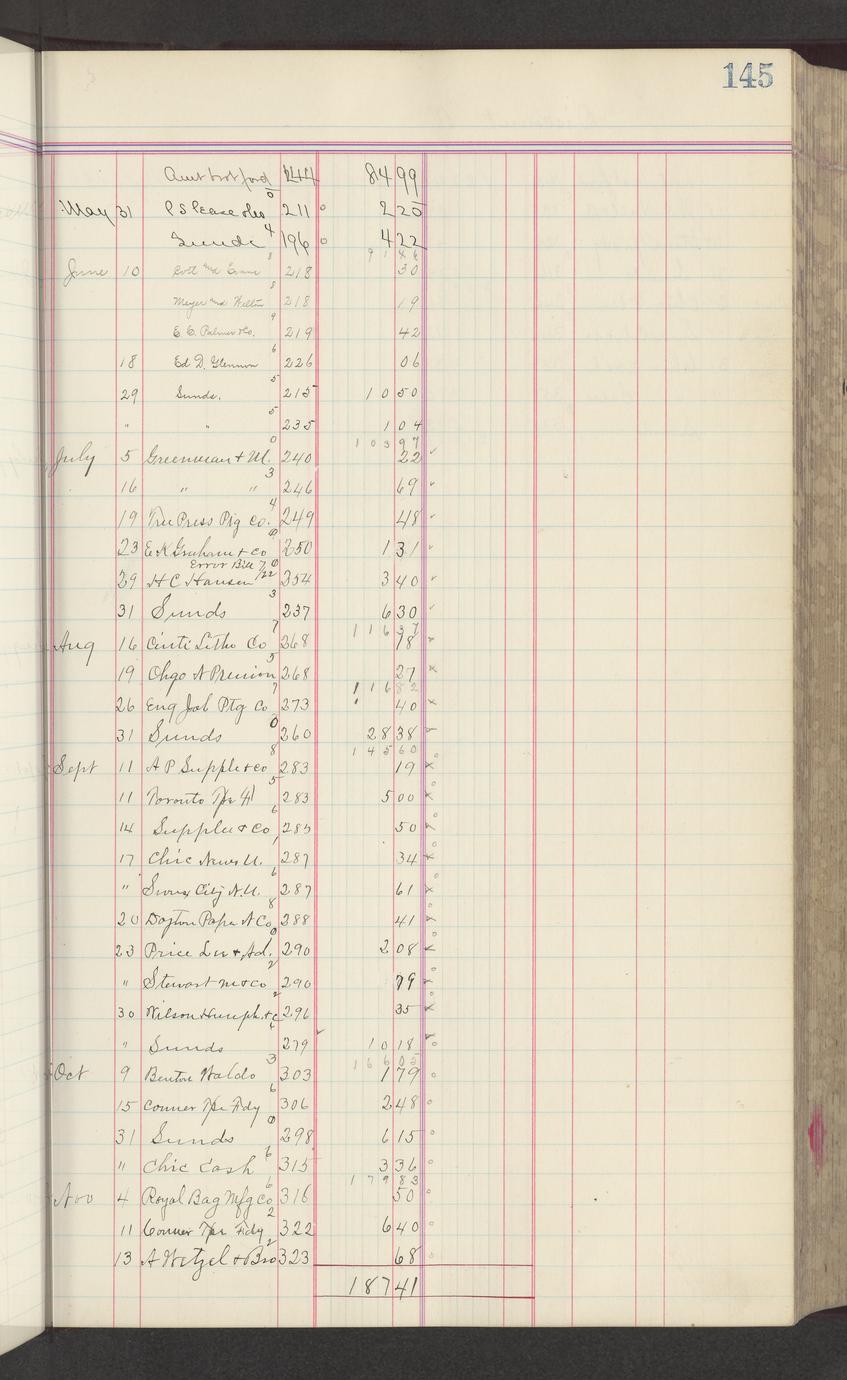 145
Amt brot ford 144 84 99
May 31 P S Pease &Co 0 211 0 2 20
Sunds 4 196 0 4 22
91 46
June 10 8 218 30
Meyer and Wilton 8 218 19
E. C. Palmer &Co. 9 219 42
18 Ed D. Glennon 6 226 06
29 Sunds. 5 215 10 50
" " 5 235 1 04
103 97
July 5 Greenman & M. 0 240 22
16 " " 3 246 69
19 Free Press Ptg Co. 4 249 48
23 E K Graham & Co 0 250 1 31
Error Bill 7/22
29 H C Hansen 0 254 3 40
31 Sunds 3 237 6 30
116 37
Aug 16 Cinti Litho Co 7 268 18
19 Chgo N Precision 5 268 27
116 82
26 Enq Job Ptg Co 7 273 40
31 Sunds 0 260 28 38
145 60
Sept 11 A P Supplee &Co 8 283 19
11 Toronto Tpr 5 283 5 00
14 Supplee & Co 6 285 50
17 Chic News U. 287 34
" Sioux City N.U. 6 287 61
20 Dayton Paper N Co 8 288 41
23 Price Lu & Ad. 0 290 2 08
" Stewart M & Co 2 290 79
30 Wilson Humph. & C 2 296 35
" Sunds 279 10 18
166 05
Oct 9 Benton Waldo 3 303 1 79
15 Conner Tpr Fdy 6 306 2 48
31 Sunds 0 298 6 15
" Chic Cash 6 315 3 36
179 83
Nov 4 Royal Bag Mfg Co 6 316 50
11 Conner Tpr Fdy 2 322 6 40
13 A Wetzel & Bro 2 323 68
187 41